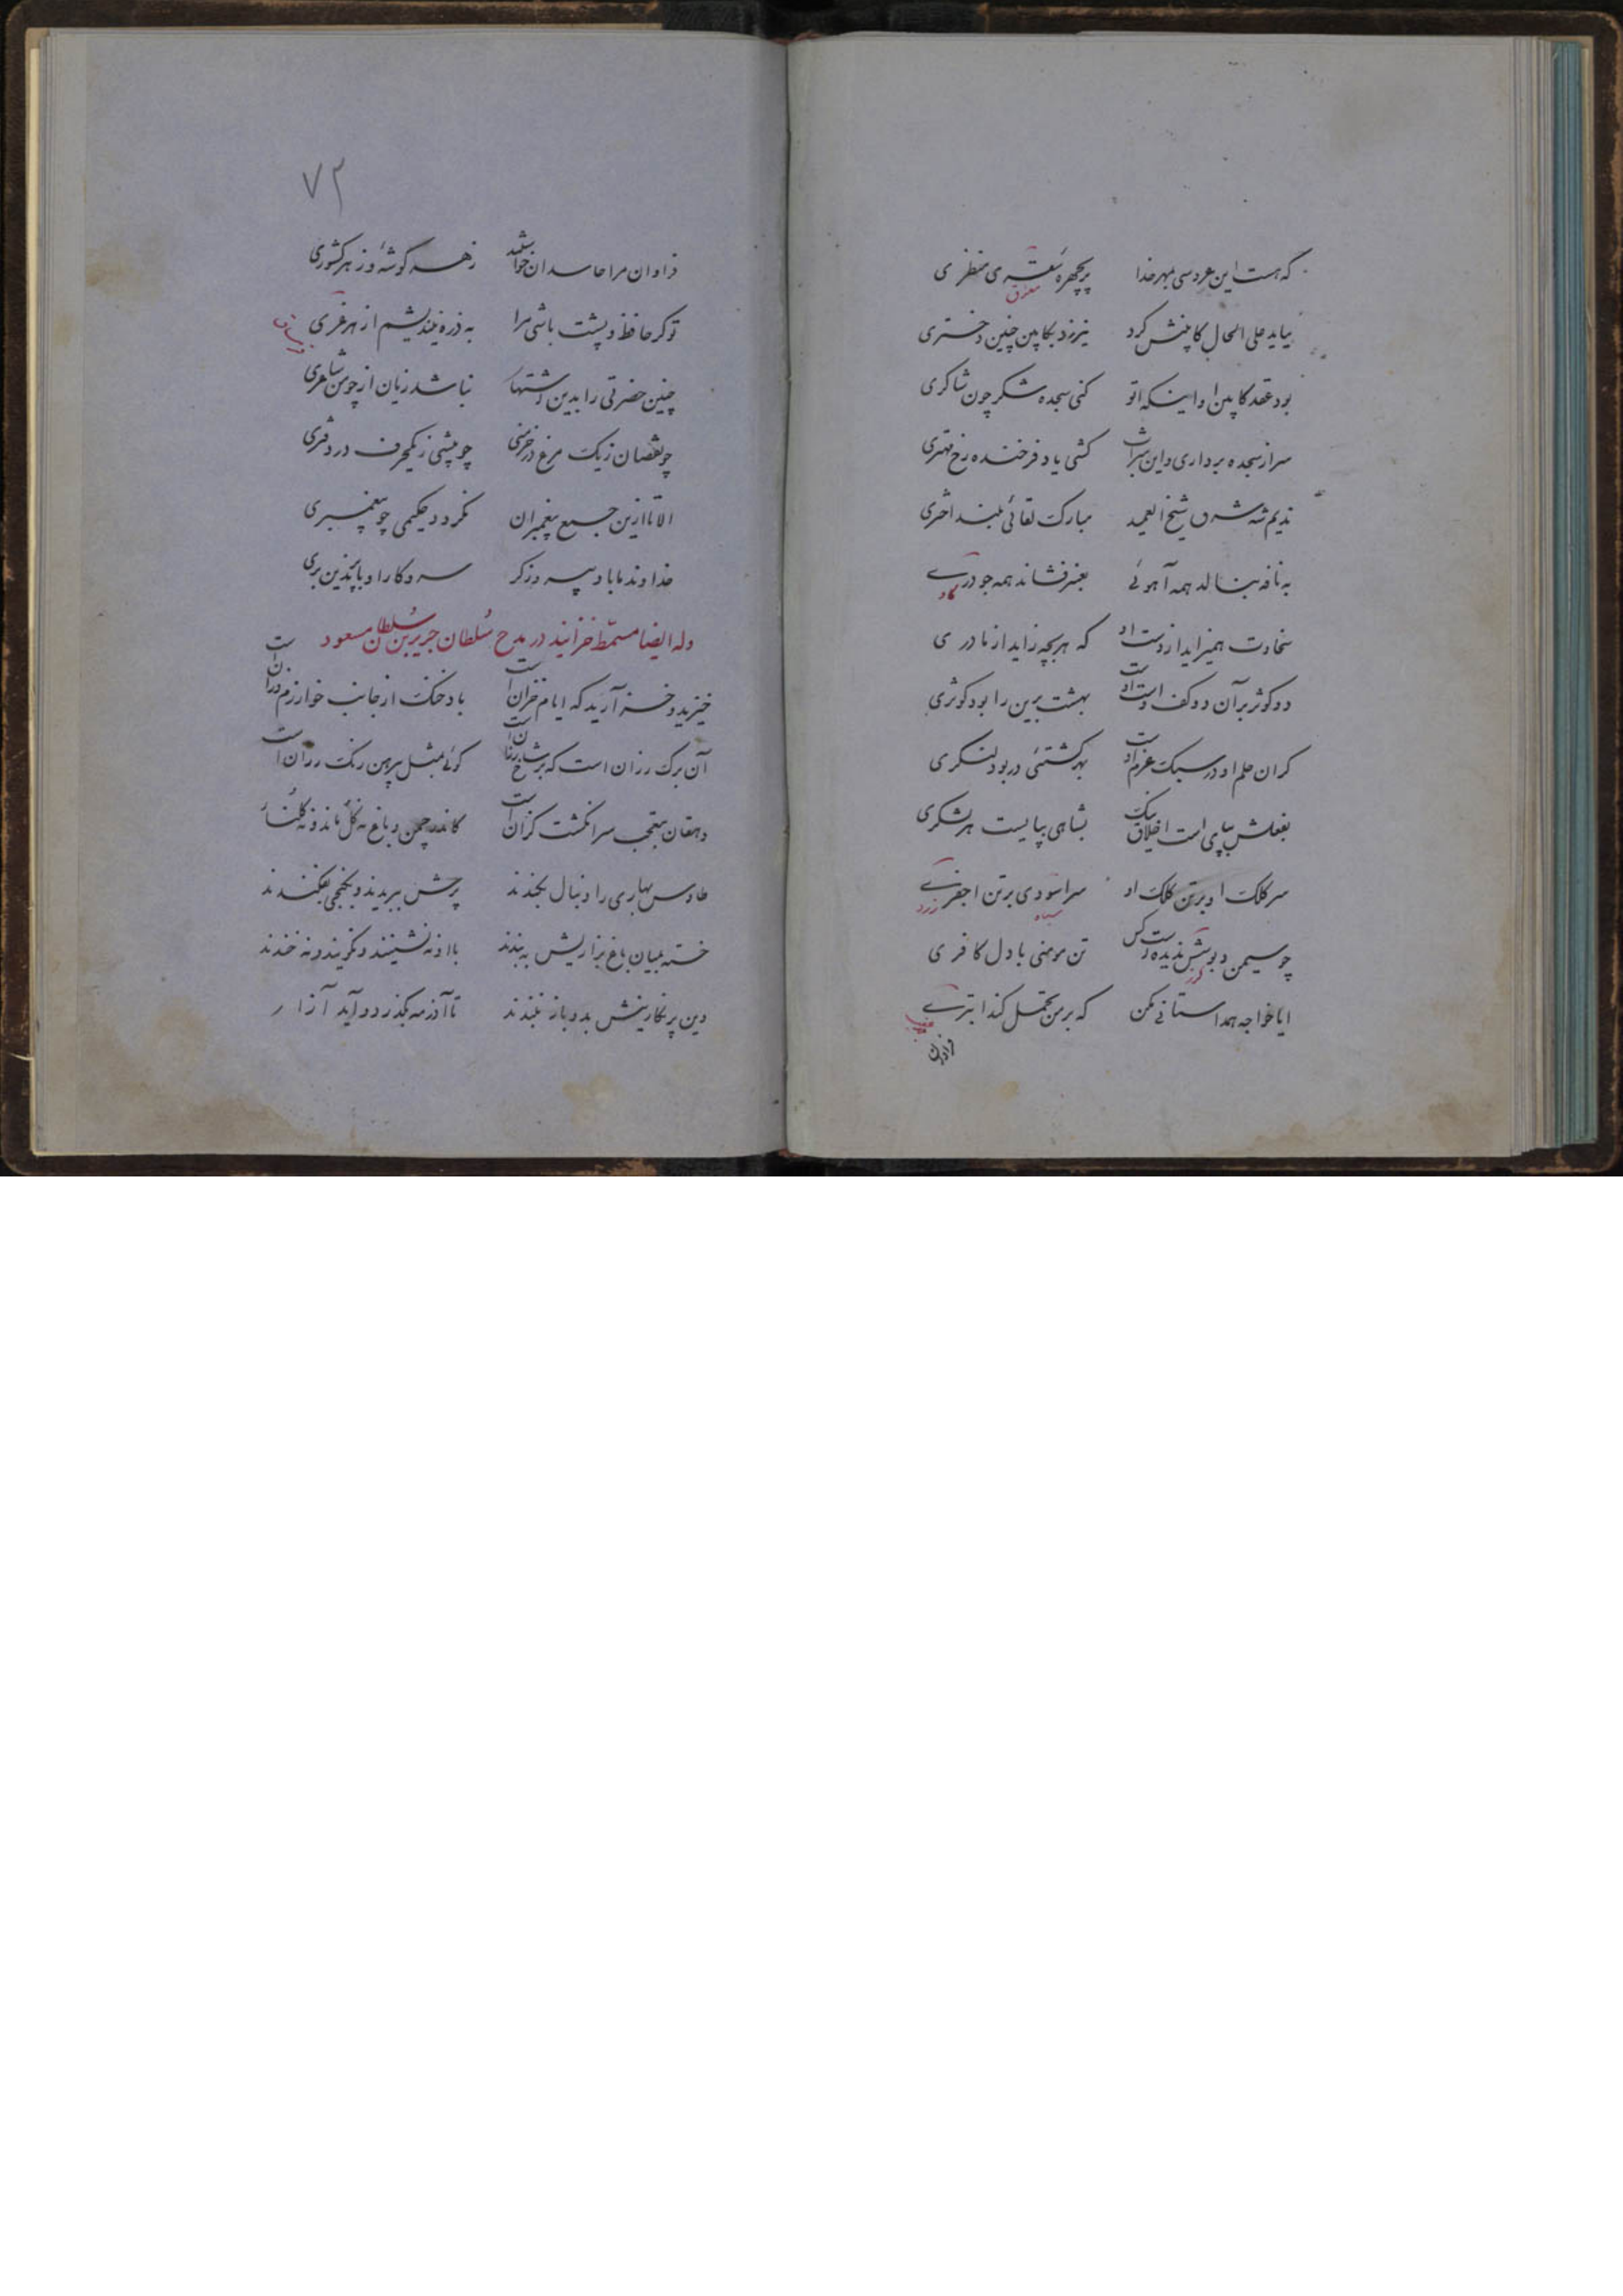 که هست این عروسی بمهر خدا پریچهره سعتری منظری
معرق
بیاید علی الحال کابینش کرد نیرزد بکابین چنین دختری
بود عقد کابین او اینکه تو کنی سجده شکر چون شاکری
سر از سجده برداری و این شراب کشی یاد فرخنده رخ مهتری
ندیم شه شرق شیخ العمید مبارک لقائی بلند اختری
به نافه بنالد همه آهوئی بعنبر فشاند همه جودری
گاو
سخاوت همیزاید از دست او که هر بچه زاید از مادری
دو کوثر بر آن دو کف دست اوست بهشت برین را بود کوثری
گران حلم او در سبک عزم اوست بهر کشتئی در بود لنگری
بفعلش بپای است اخلاق نیک بشاهی بپایست هر لشکری
سر کلک او بر تن کلک او سر اسودی بر تن اصفری
سیاه زرد
چو سیمین دبوسش ندیدست کس تن مومنی با دل کافری
ایا خواجه همداستانی مکن که بر من تحمل کند ابتری
فراوان
۷۳
فراوان مرا حاسدان خواستند ز هر گوشهٔ و ز هر کشوری
تو گر حافظ و پشت باشی مرا به ذره نیندیشم از هر غری
چنین حضرتی را بدین اشتها نباشد زیان از چو من شاعری
چو نقصان زیک مرغ در خرمنی چو بیشی زیکحرف در دفتری
الا تا ازین جمع پیغمبران نگردد حکیمی چو پیغمبری
خداوند ما باد پیروزگر سر و کار او با چنین بری
وله ایضا مسمط خزانیه در مدح سلطان جریر بن سلطان مسعود
خیزید و خز آرید که ایام خزان است باد خنک از جانب خوارزم وزان است
آن برگ رزان است که بر شاخ رزان است گوئی بمثل پیرهن رنگ رزان است
دهقان بتعجب سر انگشت گزان است کاندر چمن و باغ نه گل ماند و نه گلنار
طاوس بهاری را دنبال بکندند پرش ببریدند و بکنجی بفکندند
خسته بمیان باغ بزاریش به بندند با او نه نشینند و نگویند و نه خندند
وین پر نگارینش بدو باز نبندند تا آذر مه بگذرد و آید آزار